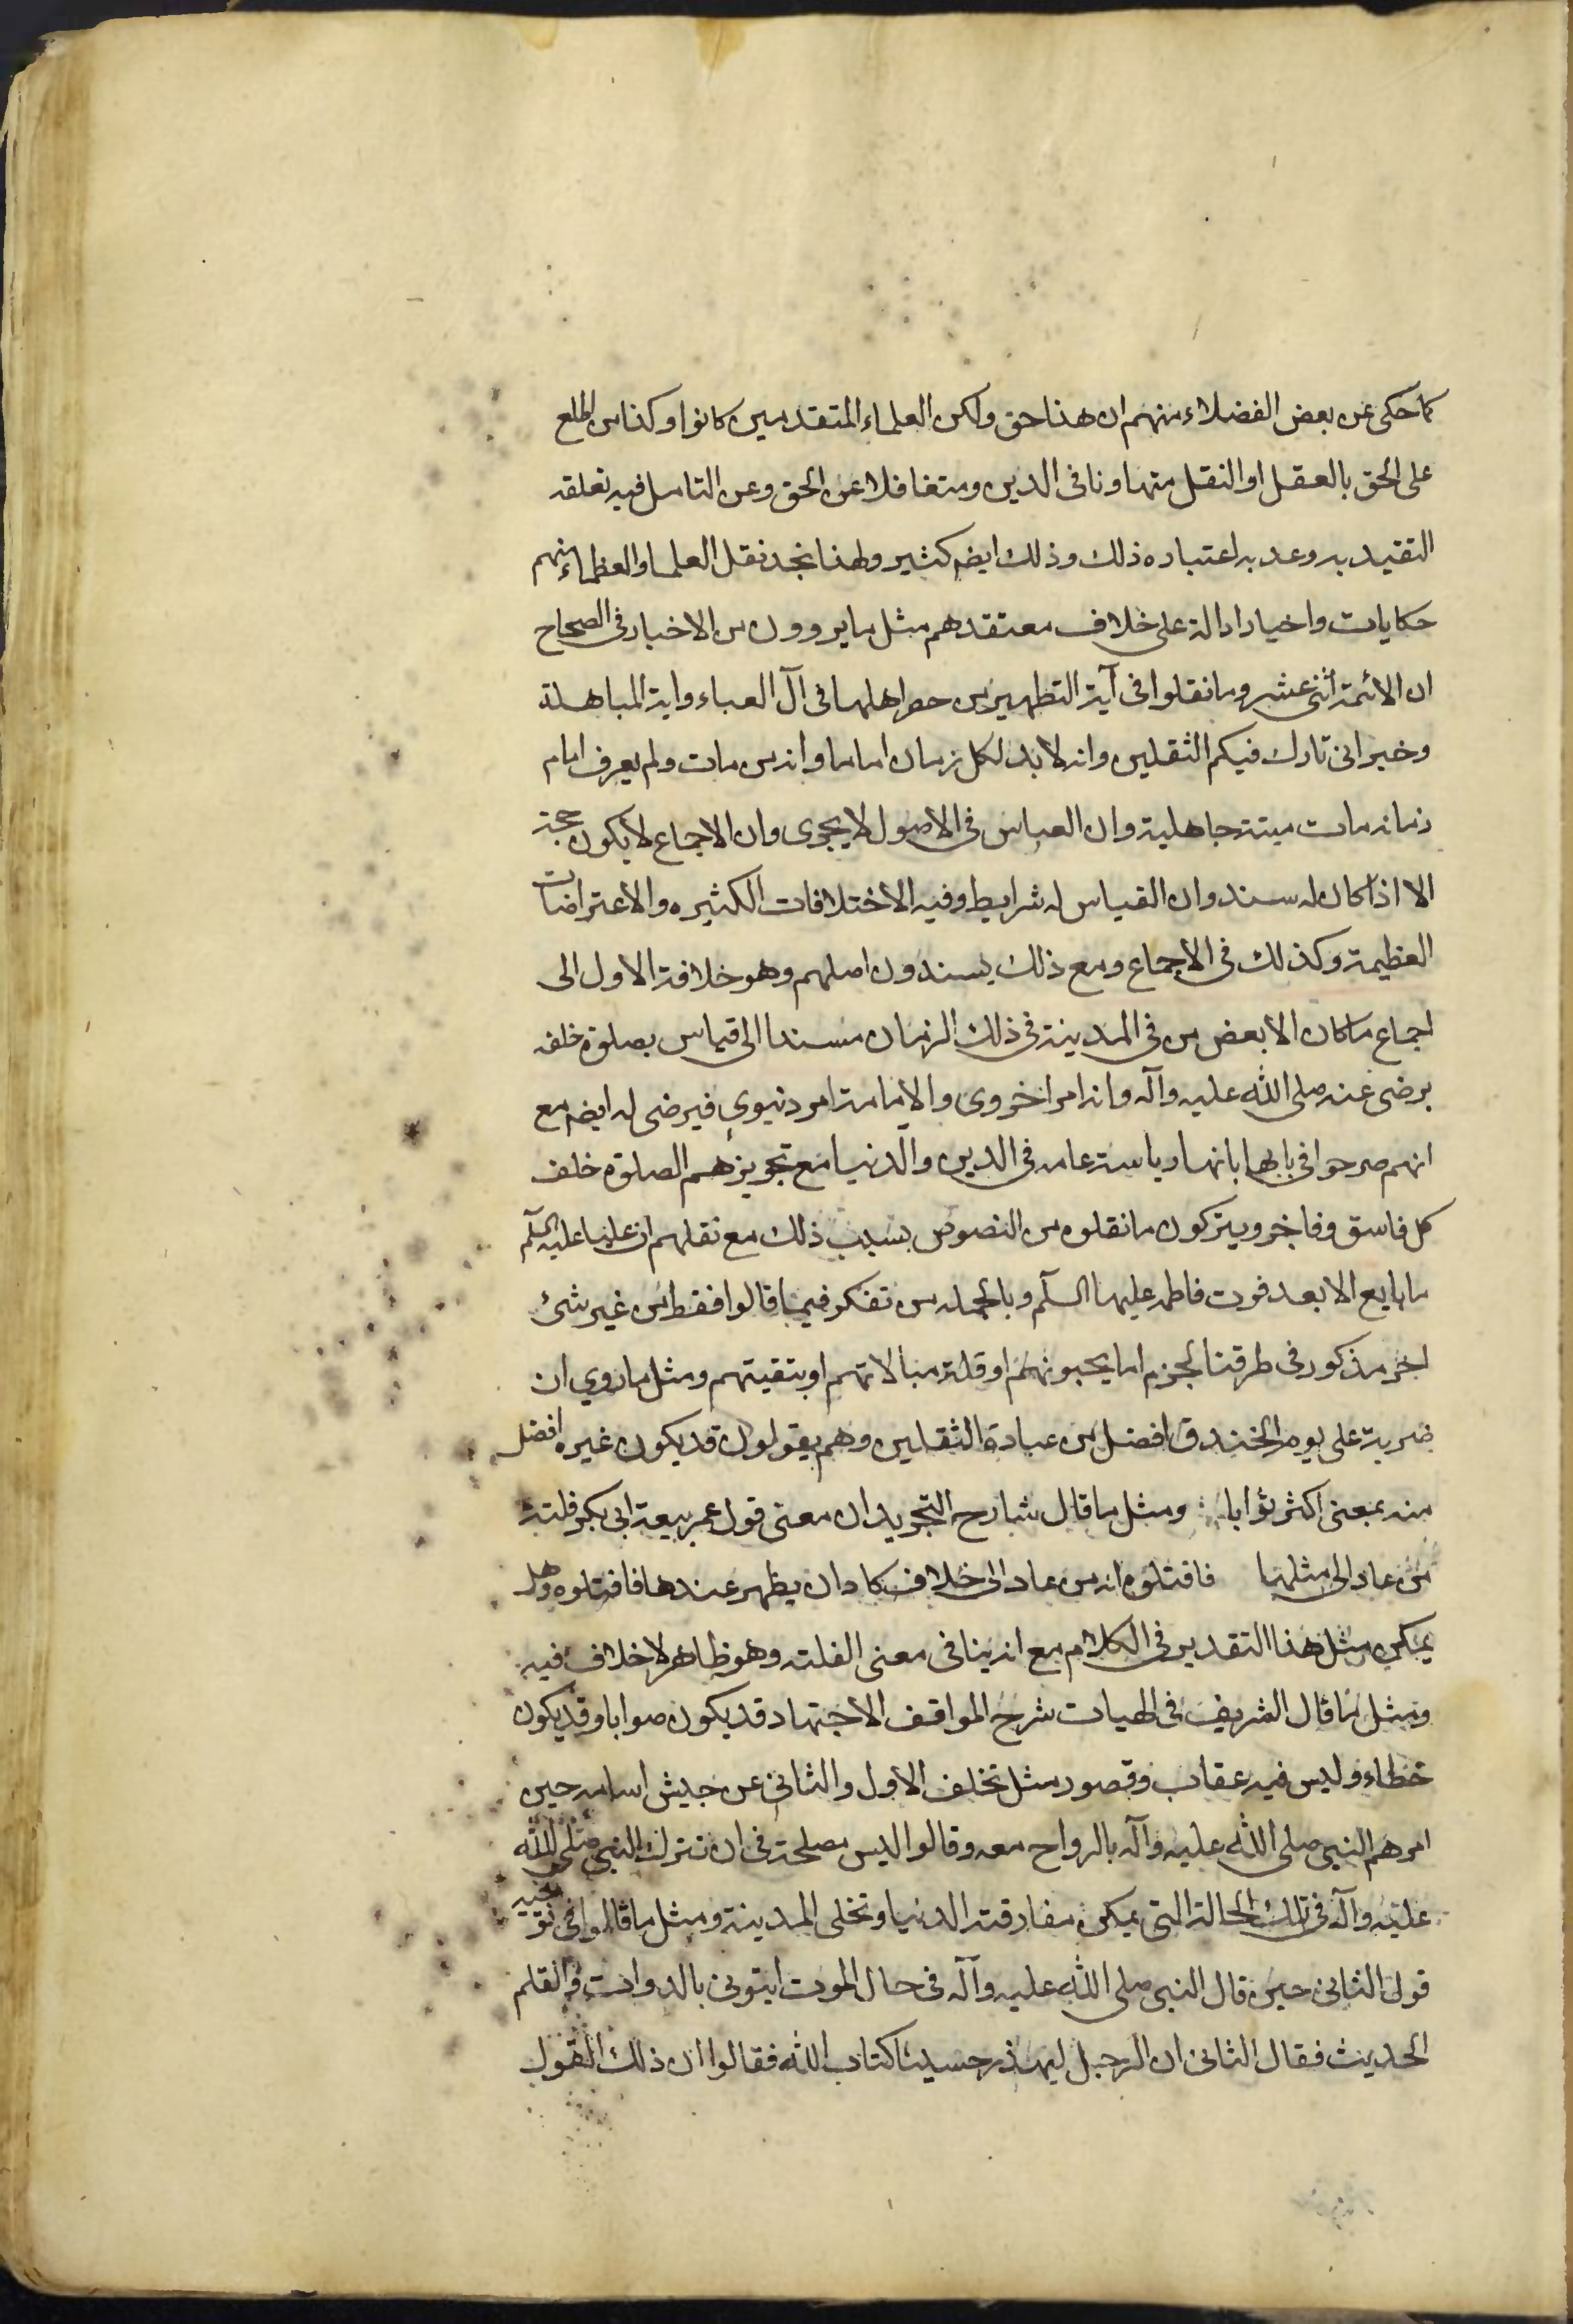 كما حكى عن بعض الفضلاء منهم ان هذا حق ولكن العلماء المتقدمين كانوا وكذا من اطلع
على الحق بالعقل او النقل متهاونا فى الدين ومتغافلا عن الحق وعن التامل فيه تعلقه
التقيد به وعدم اعتباره ذلك وذلك ايضم كثير ولهذا نجد نقل العلماء والعظماء منهم
حكايات واخبارا دالة على خلاف معتقدهم مثل ما يروون من الاخبار فى الصحاح
ان الائمة اثنى عشر وما نقلوا فى آية التطهير من حصر اهلها فى آل العباء واية المباهلة
وخبر انى تارك فيكم الثقلين وانه لا بد لكل زمان اماما وانه من مات ولم يعرف امام
زمانه مات ميتة جاهلية وان القياس فى الاصول لا يجرى وان الاجماع لا يكون حجة
الا اذا كان له سند وان القياس له شرايط وفيه الاختلافات الكثيره والاعتراضات
العظيمة وكذلك فى الاجماع ومع ذلك يسندون اصلهم وهو خلافة الاول الى
اجماع ما كان الا بعض من فى المدينة فى ذلك الزمان مسندا الى قياس بصلوة خلفه
يرضى عنه صلى الله عليه وآله وانه امر اخروى والامامة امر دنيوي فيرضى له ايضم مع
انهم صرحوا فى بابها بانها رياسة عامه فى الدين والدنيا مع تجويزهم الصلوة خلف
كل فاسق وفاجر ويتركون ما نقلوه من النصوص بسبب ذلك مع نقلهم ان عليا عليه السلم
ما بايع الا بعد فوت فاطمه عليها السلم وبالجمله من تفكر فيما قالوا فقط من غير شئ
اخر مذكور فى طرقنا لجزم اما بجبونهم او قلة مبالاتهم او بتقيتهم ومثل ما روي ان
ضربة على يوم الخندق افضل من عبادة الثقلين وهم يقولون قد يكون غيره افضل
منه بمعنى اكثر ثوابا ومثل ما قال شارح التجريد ان معنى قول عمر بيعة ابى بكر فلتة
من عاد الى مثلها فاقتلوه انه من عاد الى خلاف كاد ان يظهر عندها فاقتلوه وهل
يمكن مثل هذا التقدير فى الكلام مع انه ينافى معنى الفلته وهو ظاهر لا خلاف فيه
ومثل ما قال الشريف فى الهيات شرح المواقف الاجتهاد قد يكون صوابا وقد يكون
خطاء وليس فيه عقاب وقصور مثل تخلف الاول والثانى عن جيش اسامه حين
امرهم النبى صلى الله عليه وآله بالرواح معه وقالوا ليس مصلحة فى ان نترك النبى صلى الله
عليه وآله فى تلك الحالة التى يمكن مفارقته الدنيا وتخلى المدينة ومثل ما قالوا فى توجيه
قول الثانى حين قال النبى صلى الله عليه وآله فى حال الموت ايتونى بالدوات والقلم
الحديث فقال الثانى ان الرجل ليهذر حسبنا كتاب الله فقالوا ان ذلك القول